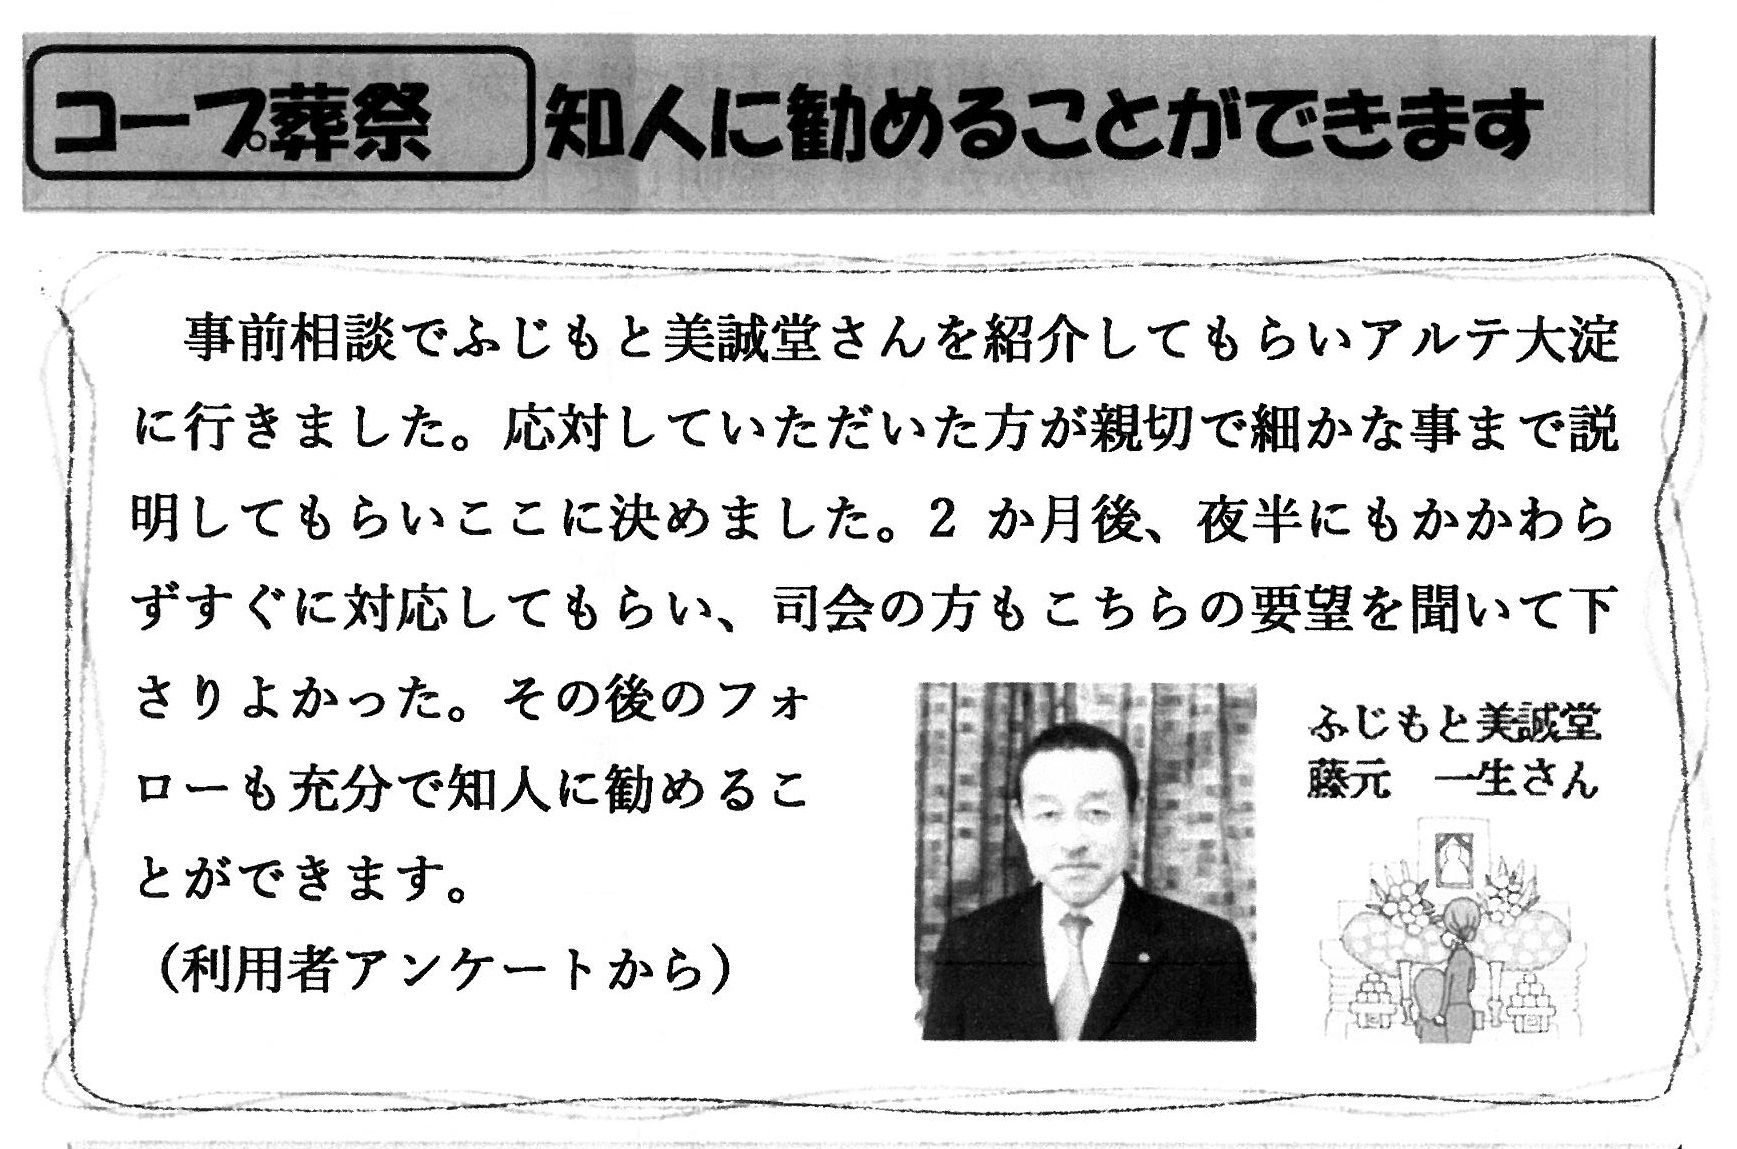 コープ葬祭 知人に勧めることができます
事前相談でふじもと美誠堂さんを紹介してもらいアルテ大淀
に行きました。応対していただいた方が親切で細かな事まで説
明してもらいここに決めました。2 か月後、夜半にもかかわら
ずすぐに対応してもらい、司会の方もこちらの要望を聞いて下
さりよかった。その後のフォ
ローも充分で知人に勧めるこ
とができます。
（利用者アンケートから）
ふじもと美誠堂
藤元　一生さん